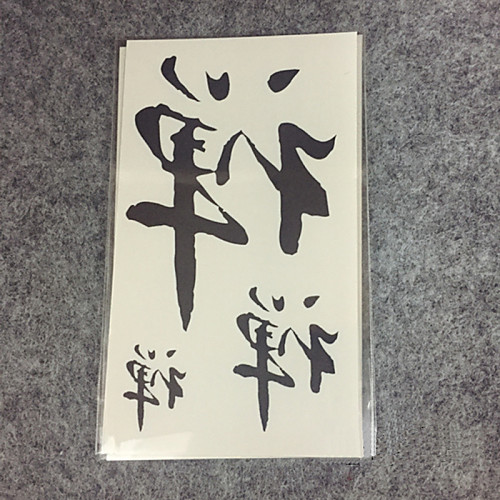 禅
禅
禅